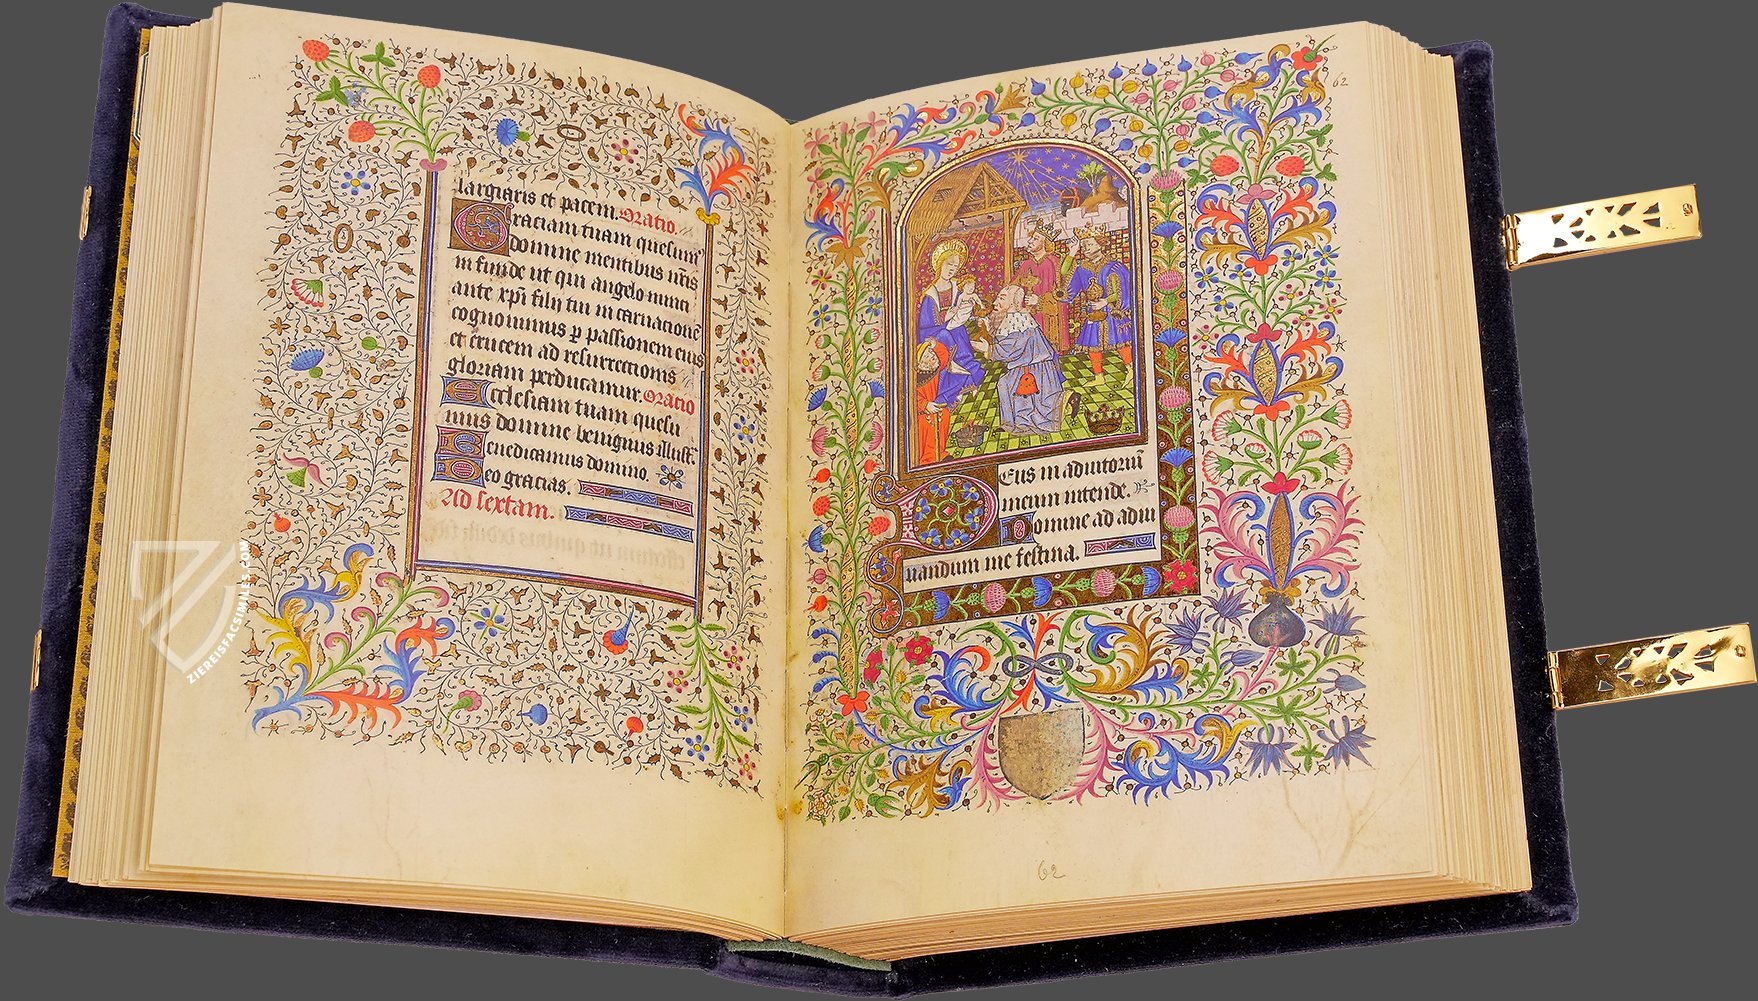 largiaris et pacem. Oratio.
Graciam tuam quesum̄
domine mentibus nr̄is
in funde ut qui angelo nunci
ante xp̄i filij tui in carnacionē
cognouimus ꝑ passionem eius
et crucem ad resurrectionis
gloriam perducamur. Oratio
Ecclesiam tuam quesu
mus domine benignus illust̄.
Benedicamus domino.
Deo gracias.
Ad sextam.
62
Deus in adiutoriū
meum intende.
Domine ad adiu
uandum me festina.
62
ZIEREISFACSIMILES.COM